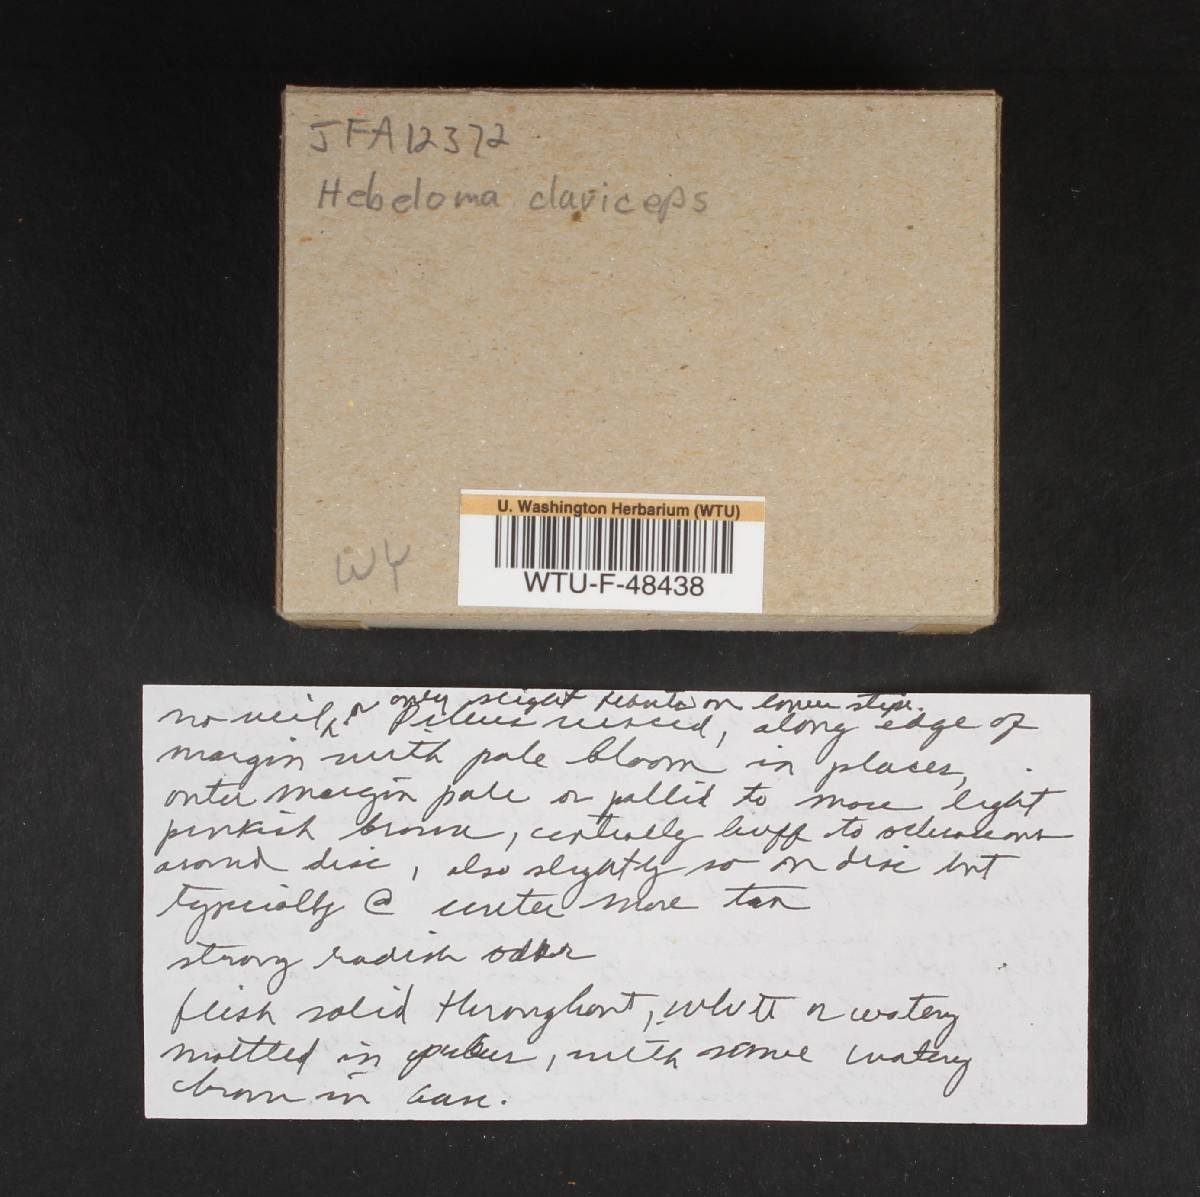 JFA12372
Hebeloma claviceps
WY
U. Washington Herbarium (WTU)
WTU-F-48438
or only slight on lower stipe.
no veil, Pileus viscid, along edge of
margin with pale bloom in places,
outer margin pale or pallid to more light
pinkish brown, centrally buff to ochraceous
around disc, also slightly so on disc but
typically @ center more tan
strong radish odor
flesh solid throughout, white or watery
mottled in pileus, with some watery
brown in base.